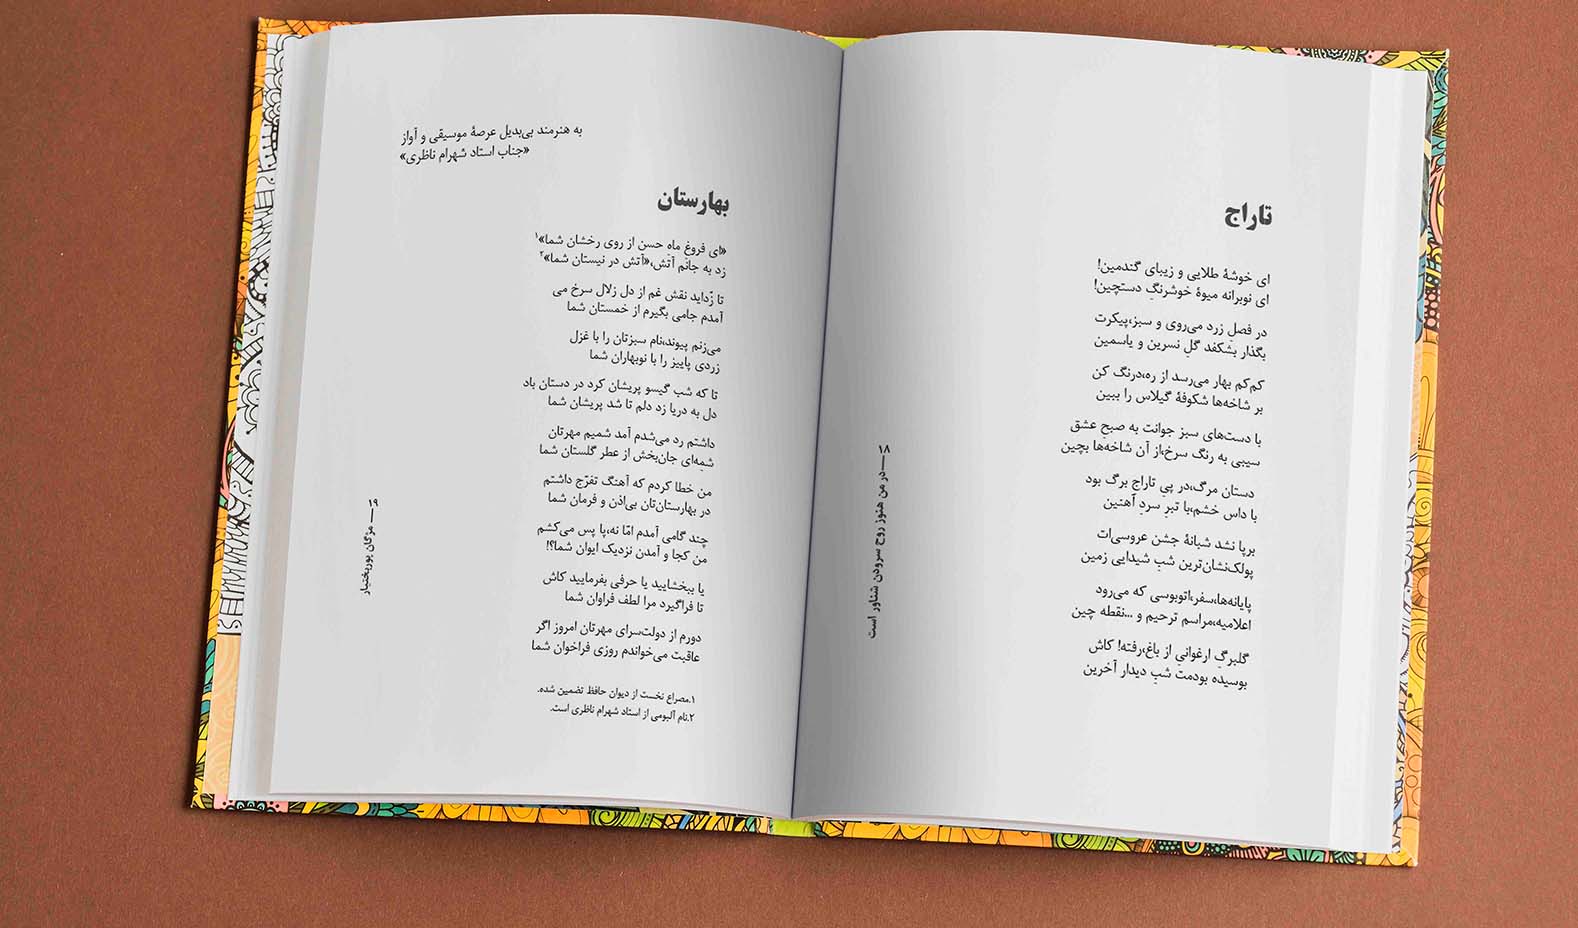 تاراج
ای خوشهٔ طلایی و زیبای گندمین!
ای نوبرانه میوهٔ خوشرنگِ دستچین!
در فصلِ زرد می‌روی و سبز،پیکرت
بگذار بشکفد گلِ نسرین و یاسمین
کم‌کم بهار می‌رسد از ره،درنگ کن
بر شاخه‌ها شکوفهٔ گیلاس را ببین
با دست‌های سبز جوانت به صبحِ عشق
سیبی به رنگ سرخ،از آن شاخه‌ها بچین
دستان مرگ،در پیِ تاراجِ برگ بود
با داس خشم،با تبرِ سردِ آهنین
برپا نشد شبانهٔ جشن عروسی‌ات
پولک‌نشان‌ترین شبِ شیدایی زمین
پایانه‌ها،سفر،اتوبوسی که می‌رود
اعلامیه،مراسم ترحیم و ...نقطه چین
گلبرگِ ارغوانیِ از باغ،رفته! کاش
بوسیده بودمت شبِ دیدار آخرین
۱۸—در من هنوز روح سرودن شناور است
به هنرمند بی‌بدیل عرصهٔ موسیقی و آواز
«جناب استاد شهرام ناظری»
بهارستان
«ای فروغ ماه حسن از روی رخشان شما»۱
زد به جانم آتش،«آتش در نیستان شما»۲
تا زُداید نقش غم از دل زلال سرخ می
آمدم جامی بگیرم از خمستان شما
می‌زنم پیوند،نام سبزتان را با غزل
زردی پاییز را با نوبهاران شما
تا که شب گیسو پریشان کرد در دستان باد
دل به دریا زد دلم تا شد پریشان شما
داشتم رد می‌شدم آمد شمیم مهرتان
شمه‌ای جان‌بخش از عطر گلستان شما
من خطا کردم که آهنگ تفرّج داشتم
در بهارستان‌تان بی‌اذن و فرمان شما
چند گامی آمدم امّا نه،پا پس می‌کشم
من کجا و آمدن نزدیک ایوان شما؟!
یا ببخشایید یا حرفی بفرمایید کاش
تا فراگیرد مرا لطف فراوان شما
دورم از دولت‌سرای مهرتان امروز اگر
عاقبت می‌خواندم روزی فراخوان شما
۱.مصراع نخست از دیوان حافظ تضمین شده.
۲.نام آلبومی از استاد شهرام ناظری است.
۱۹ — مژگان پوربختیار